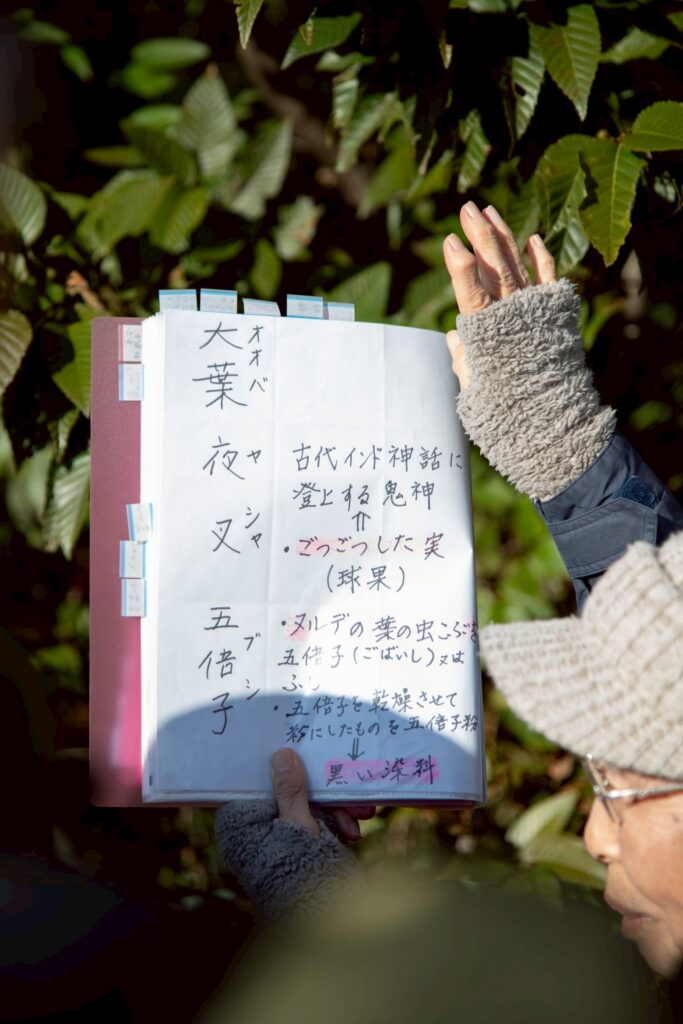 大葉 夜叉 五倍子
オオバ ヤシャ ブシ
古代インド神話に
登上する鬼神
⇑
・ごつごつした実
(球果)
・ヌルデの葉の虫こぶを
五倍子(ごばいし)又は
ふし
・五倍子を乾燥させて
粉にしたものを五倍子粉
⇓
黒い染料